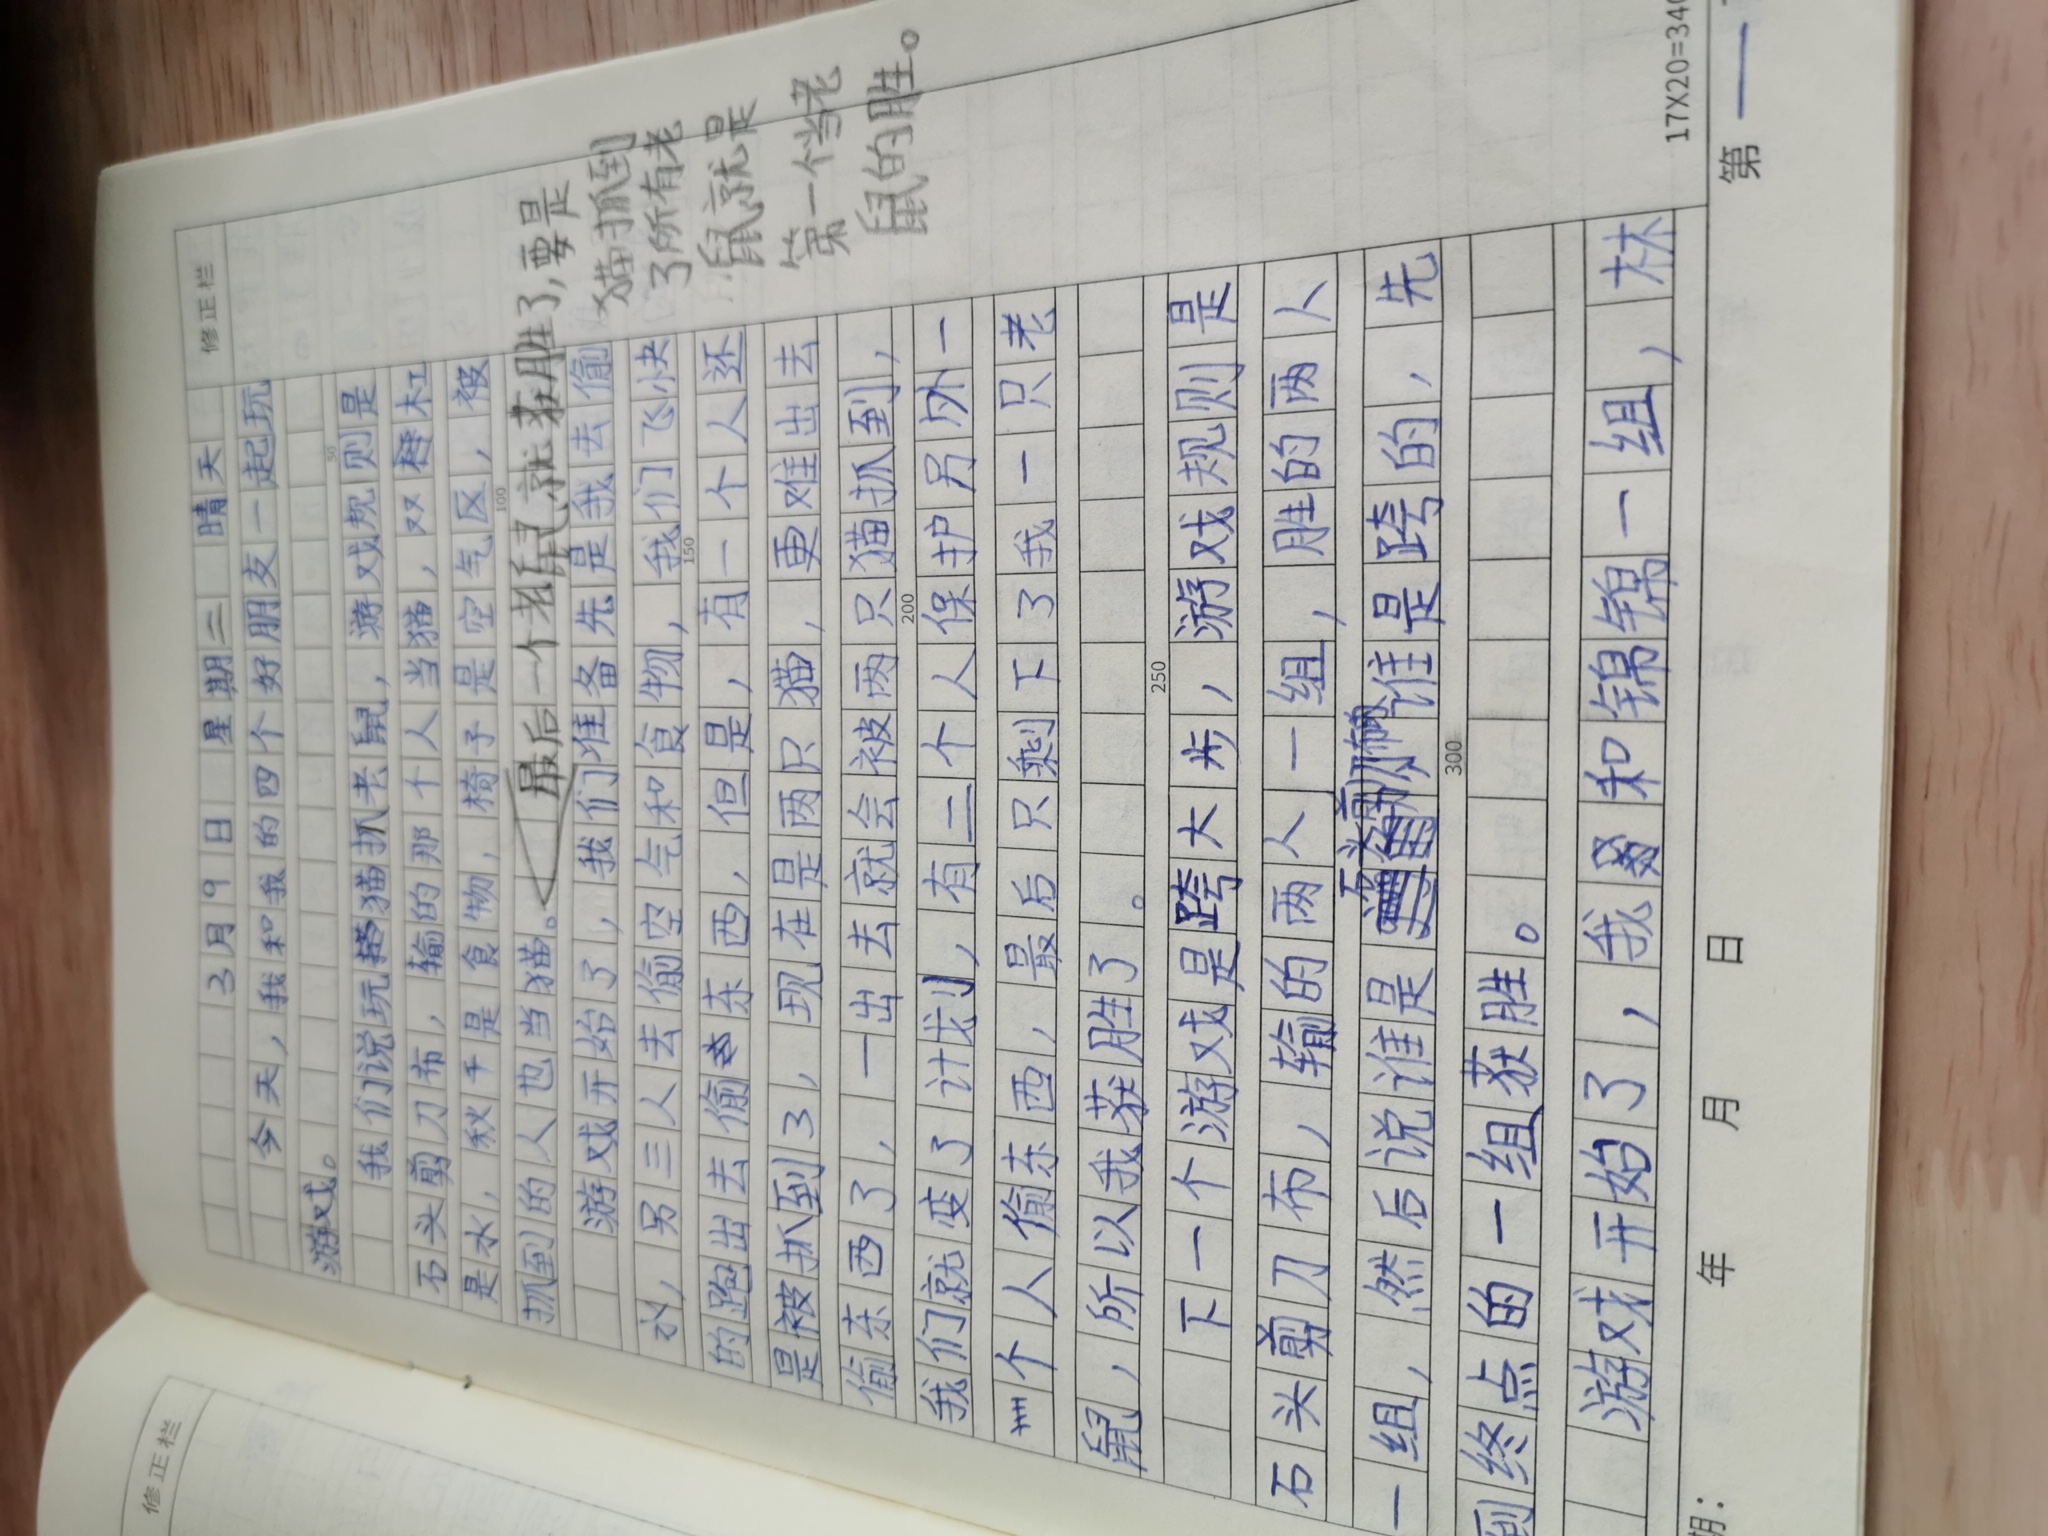 修正栏
3月9日 星期二 晴天
今天，我和我的四个好朋友一起玩
游戏。
我们说玩猫抓老鼠，游戏规则是
石头剪刀布，输的那个人当猫，双杠
是水，秋千是食物，椅子是空气区，被
抓到的人也当猫。
最后一个老鼠就获胜了，要是
猫抓到
了所有老
鼠就是
第一个当老
鼠的胜。
游戏开始了，我们准备先是我去偷
水，另三人去偷空气和食物，我们飞快
的跑出去偷东西，但是，有一个人还
是被抓到了，现在是两只猫，更难出去
偷东西了，一出去就会被两只猫抓到，
我们就变了计划，有二个人保护另外一
个人偷东西，最后只剩下了我一只老
鼠，所以我获胜了。
下一个游戏是跨大步，游戏规则是
石头剪刀布，输的两人一组，胜的两人
一组，然后说谁是谁是跨的，先
到终点的一组获胜。
游戏开始了，我和锦锦一组，林
50
100
150
200
250
300
17X20=340
期： 年 月 日 第一
修正栏